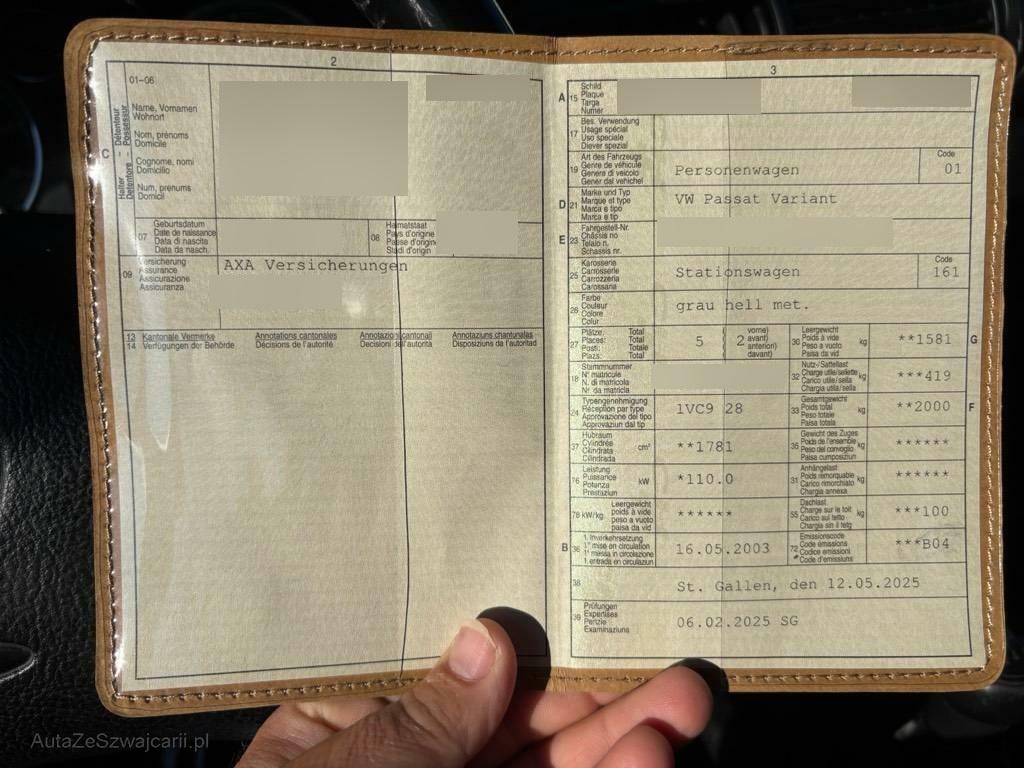 2
01-06
Halter
Détenteur
Detentore
Possessur
C
Name, Vornamen
Wohnort
Nom, prénoms
Domicile
Cognome, nomi
Domicilio
Num, prenums
Domicil
07 Geburtsdatum
Date de naissance
Data di nascita
Data da nasch.
08 Heimatstaat
Pays d'origine
Paese d'origine
Stadi d'origin
09 Versicherung
Assurance
Assicurazione
Assicuranza
AXA Versicherungen
13 Kantonale Vermerke Annotations cantonales Annotazioni cantonali Annotaziuns chantunalas
14 Verfügungen der Behörde Décisions de l'autorité Decisioni dell'autorità Disposiziuns da l'autoritad
3
A 15 Schild
Plaque
Targa
Numer
17 Bes. Verwendung
Usage spécial
Uso speciale
Diever spezial
19 Art des Fahrzeugs
Genre de véhicule
Genere di veicolo
Gener dal vehichel
Personenwagen
Code
01
D 21 Marke und Typ
Marque et type
Marca e tipo
Marca e tip
VW Passat Variant
E 23 Fahrgestell-Nr.
Châssis no
Telaio n.
Schassis nr.
25 Karosserie
Carrosserie
Carrozzeria
Carossaria
Stationswagen
Code
161
26 Farbe
Couleur
Colore
Colur
grau hell met.
27 Plätze: Total
Places: Total
Posti: Totale
Plazs: Total
5
2
vorne)
avant)
anteriori)
davant)
30 Leergewicht
Poids à vide
Peso a vuoto
Paisa da vid
kg
**1581
G
18 Stammnummer
N° matricule
N. di matricola
Nr. da matricla
32 Nutz-/Sattellast
Charge utile/sellette
Carico utile/sella
Chargia utila/sella
kg
***419
24 Typengenehmigung
Réception par type
Approvazione del tipo
Approvaziun dal tip
1VC9 28
33 Gesamtgewicht
Poids total
Peso totale
Paisa totala
kg
**2000
F
37 Hubraum
Cylindrée
Cilindrata
Cilindrada
cm³
**1781
35 Gewicht des Zuges
Poids de l'ensemble
Peso del convoglio
Paisa cumposiziun
kg
******
76 Leistung
Puissance
Potenza
Prestaziun
kW
*110.0
31 Anhängelast
Poids remorquable
Carico rimorchiato
Chargia annexa
kg
******
78 kW/kg
Leergewicht
poids à vide
peso a vuoto
paisa da vid
******
55 Dachlast
Charge sur le toit
Carico sul tetto
Chargia sin il tetg
kg
***100
B 36 1. Inverkehrsetzung
1re mise en circulation
1a messa in circolazione
1. entrada en circulaziun
16.05.2003
72 Emissionscode
Code émissions
Codice emissioni
Code d'emissiuns
***B04
38
St. Gallen, den 12.05.2025
39 Prüfungen
Expertises
Perizie
Examinaziuns
06.02.2025 SG
AutaZeSzwajcarii.pl